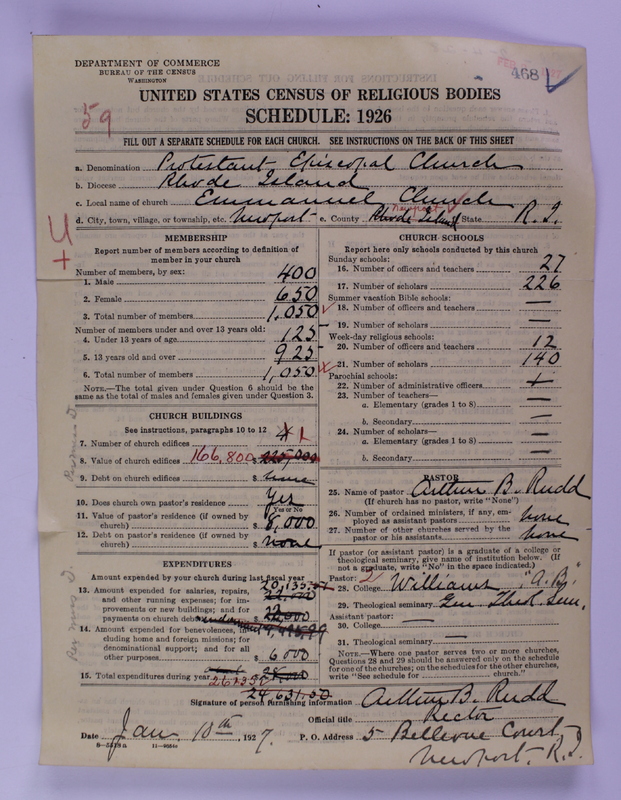 DEPARTMENT OF COMMERCE
BUREAU OF THE CENSUS
WASHINGTON
468
UNITED STATES CENSUS OF RELIGIOUS BODIES
SCHEDULE: 1926
59
FILL OUT A SEPARATE SCHEDULE FOR EACH CHURCH. SEE INSTRUCTIONS ON THE BACK OF THIS SHEET
a. Denomination Protestant Episcopal Church
b. Diocese Rhode Island
c. Local name of church Emmanuel Church
d. City, town, village, or township, etc. Newport e. County Rhode Island Newport State R. I.
4
+
MEMBERSHIP
Report number of members according to definition of
member in your church
Number of members, by sex:
1. Male 400
2. Female 650
3. Total number of members 1,050
Number of members under and over 13 years old:
4. Under 13 years of age 125
5. 13 years old and over 925
6. Total number of members 1,050
NOTE.—The total given under Question 6 should be the
same as the total of males and females given under Question 3.
CHURCH BUILDINGS
See instructions, paragraphs 10 to 12
7. Number of church edifices 4 1
8. Value of church edifices 166,800 $
9. Debt on church edifices $ none
10. Does church own pastor's residence yes
(Yes or No)
11. Value of pastor's residence (if owned by
church) $ 8,000
12. Debt on pastor's residence (if owned by
church) $ none
EXPENDITURES
Amount expended by your church during last fiscal year
13. Amount expended for salaries, repairs,
and other running expenses; for im-
provements or new buildings; and for
payments on church debt $ 22,000
14. Amount expended for benevolences, in-
cluding home and foreign missions; for
denominational support; and for all
other purposes $ 6000
15. Total expenditures during year $
24,631.50
CHURCH SCHOOLS
Report here only schools conducted by this church
Sunday schools:
16. Number of officers and teachers 27
17. Number of scholars 226
Summer vacation Bible schools:
18. Number of officers and teachers —
19. Number of scholars —
Week-day religious schools:
20. Number of officers and teachers 12
21. Number of scholars 140
Parochial schools:
22. Number of administrative officers —
23. Number of teachers—
a. Elementary (grades 1 to 8) —
b. Secondary —
24. Number of scholars—
a. Elementary (grades 1 to 8) —
b. Secondary —
PASTOR
25. Name of pastor Arthur B. Rudd
(If church has no pastor, write "None")
26. Number of ordained ministers, if any, em-
ployed as assistant pastors none
27. Number of other churches served by the
pastor or his assistants none
If pastor (or assistant pastor) is a graduate of a college or
theological seminary, give name of institution below. (If
not a graduate, write "No" in the space indicated.)
Pastor:
28. College Williams "A.B."
29. Theological seminary Gen. Theol. Sem.
Assistant pastor:
30. College —
31. Theological seminary —
NOTE.—Where one pastor serves two or more churches,
Questions 28 and 29 should be answered only on the schedule
for one of the churches; on the schedules for the other churches,
write "See schedule for church."
Signature of person furnishing information Arthur B. Rudd
Official title Rector
Date Jan. 10th, 1927. P. O. Address 5 Bellevue Court
8—5518a 11—9084a
Newport, R. I.